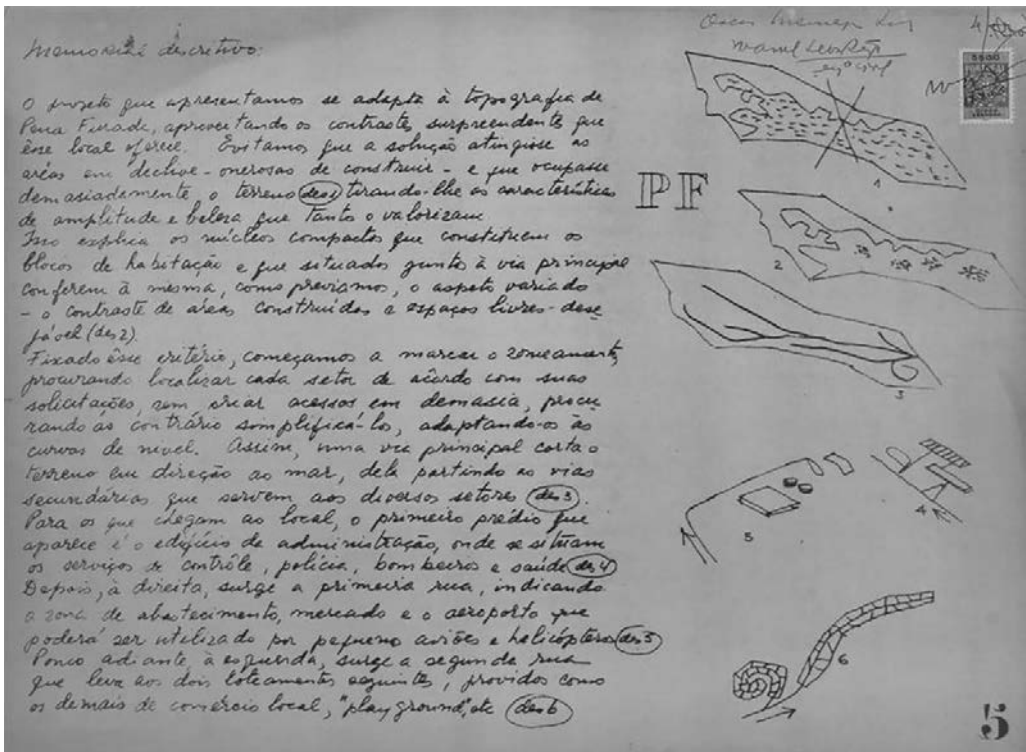 Memorial descritivo:
O projeto que apresentamos se adapta à topografia de
Pena Furada, aproveitando os contrastes surpreendentes que
êsse local oferece. Evitamos que a solução atingisse as
aréas em declive - onerosas de construir - e que ocupasse
demasiadamente o terreno (des 1) tirando-lhe as características
de amplitude e beleza que tanto o valorizam
Isso explica os núcleos compactos que constituem os
blocos de habitação e que situados junto à via principal
conferem à mesma, como previamos, o aspeto variado
- o contraste de aréas construidas e espaços livres - dese
jável (des 2).
Fixado êsse critério, começamos a marcar o zoneamento,
procurando localizar cada setor de acôrdo com suas
solicitações, sem criar acessos em demasia, procu
rando ao contrário simplificá-los, adaptando-os às
curvas de nivel. Assim, uma via principal corta o
terreno em direção ao mar, dela partindo as vias
secundárias que servem aos diversos setores (des 3).
Para os que chegam ao local, o primeiro prédio que
aparece é o edifício da administração, onde se situam
os serviços de contrôle, polícia, bombeiros e saúde (des 4)
Depois, à direita, surge a primeira rua, indicando
a zona de abastecimento, mercado e o aeroporto que
poderá ser utilizado por pequeno aviões e helicópteros (des 5)
Pouco adiante, à esquerda, surge a segunda rua
que leva aos dois loteamentos seguintes, providos como
os demais de comercio local, "play ground", etc (des 6)
Oscar Niemeyer
engº civil
5500
PF
1
2
3
4
5
6
5